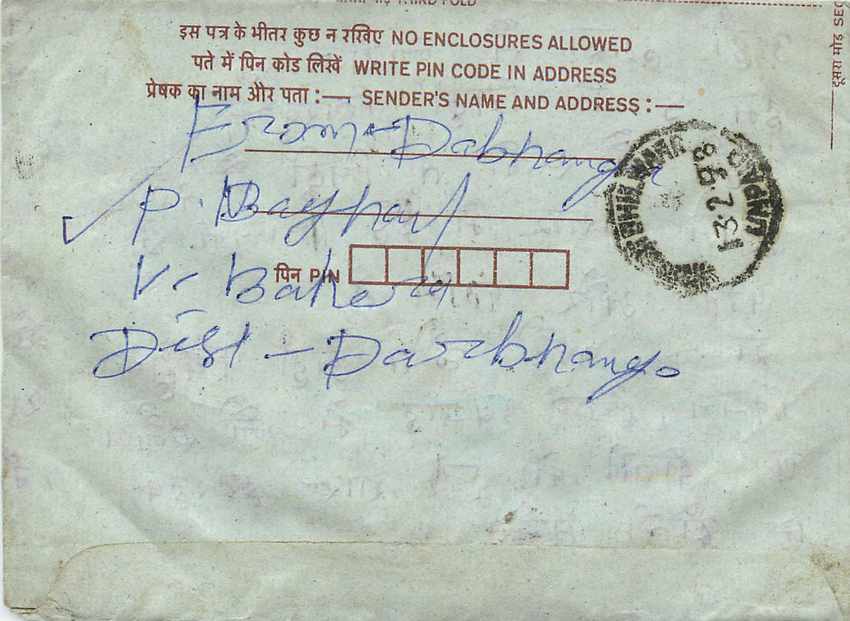 THIRD FOLD
इस पत्र के भीतर कुछ न रखिए NO ENCLOSURES ALLOWED
पते में पिन कोड लिखें WRITE PIN CODE IN ADDRESS
प्रेषक का नाम और पता :— SENDER'S NAME AND ADDRESS :—
From - Dabhanga
P.
पिन PIN
V- Bahera
Dist - Darbhanga
दूसरा मोड़ SEC
13.2.98